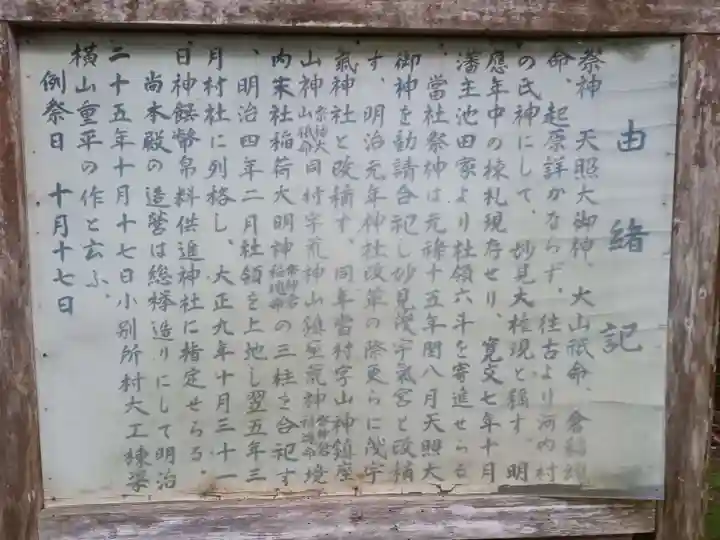 由緒記
祭神 天照大御神、大山祇命、倉稲魂
命、起原詳かならず、往古より河内村
の氏神にして、妙見大権現と稱す。明
應年中の棟札現存せり、寛文七年十月
藩主池田家より社領六斗を寄進せらる
、當社祭神は元禄十五年閏八月天照大
御神を勧請合祀し妙見浅宇氣宮と改稱
す、明治元年神社改革の際更らに浅宇
氣神社と改稱す、同年當村字山神鎮座
山神祭神大山祇命同村字荒神山鎮座荒神祭神倉稲魂命境
内末社稲荷大明神祭神倉稲魂命の三柱を合祀す
、明治四年二月社領を上地し翌五年三
月村社に列格し、大正九年十月三十一
日神饌幣帛料供進神社に指定せらる、
尚本殿の造営は総欅造りにして明治
二十五年十月十七日小別所村大工棟梁
横山重平の作と云ふ、
例祭日 十月十七日